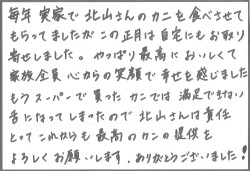 毎年 実家で北山さんのカニを食べさせて
もらってましたがこの正月は自宅にもお取り
寄せしました。やっぱり最高においしくて
家族全員 心からの笑顔で幸せを感じました
もうスーパーで買ったカニでは満足できない
舌になってしまったので北山さんは責任
とってこれからも最高のカニの提供を
よろしくお願いします。ありがとうございました!